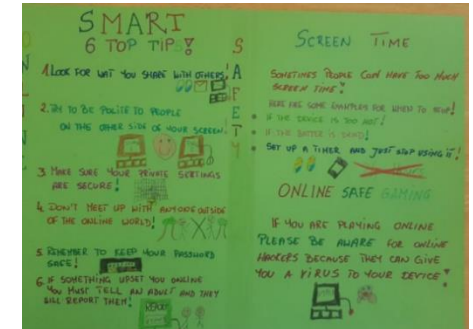 SMART
6 TOP TIPS!
1. LOOK FOR WAT YOU SHARE WITH OTHERS!
2. TRY TO BE POLITE TO PEOPLE
ON THE OTHER SIDE OF YOUR SCREEN!
3 MAKE SURE YOUR PRIVATE SETTINGS
ARE SECURE!
4. DON'T MEET UP WITH ANYONE OUTSIDE
OF THE ONLINE WORLD!
5. REMEMBER TO KEEP YOUR PASSWORD
SAFE!
6. IF SOMETHING UPSET YOU ONLINE
YOU MUST TELL AN ADULT AND THEY
WILL REPORT THEM!
SAFETY
SCREEN TIME
SOMETIMES PEOPLE CAN HAVE TOO MUCH
SCREEN TIME!
HERE ARE SOME EXAMPLES FOR WHEN TO STOP!
IF THE DEVICE IS TOO HOT!
IF THE BATTERY IS DEAD!
SET UP A TIMER AND JUST STOP USING IT!
ONLINE SAFE GAMING
IF YOU ARE PLAYING ONLINE
PLEASE BE AWARE FOR ONLINE
HACKERS BECAUSE THEY CAN GIVE
YOU A VIRUS TO YOUR DEVICE!